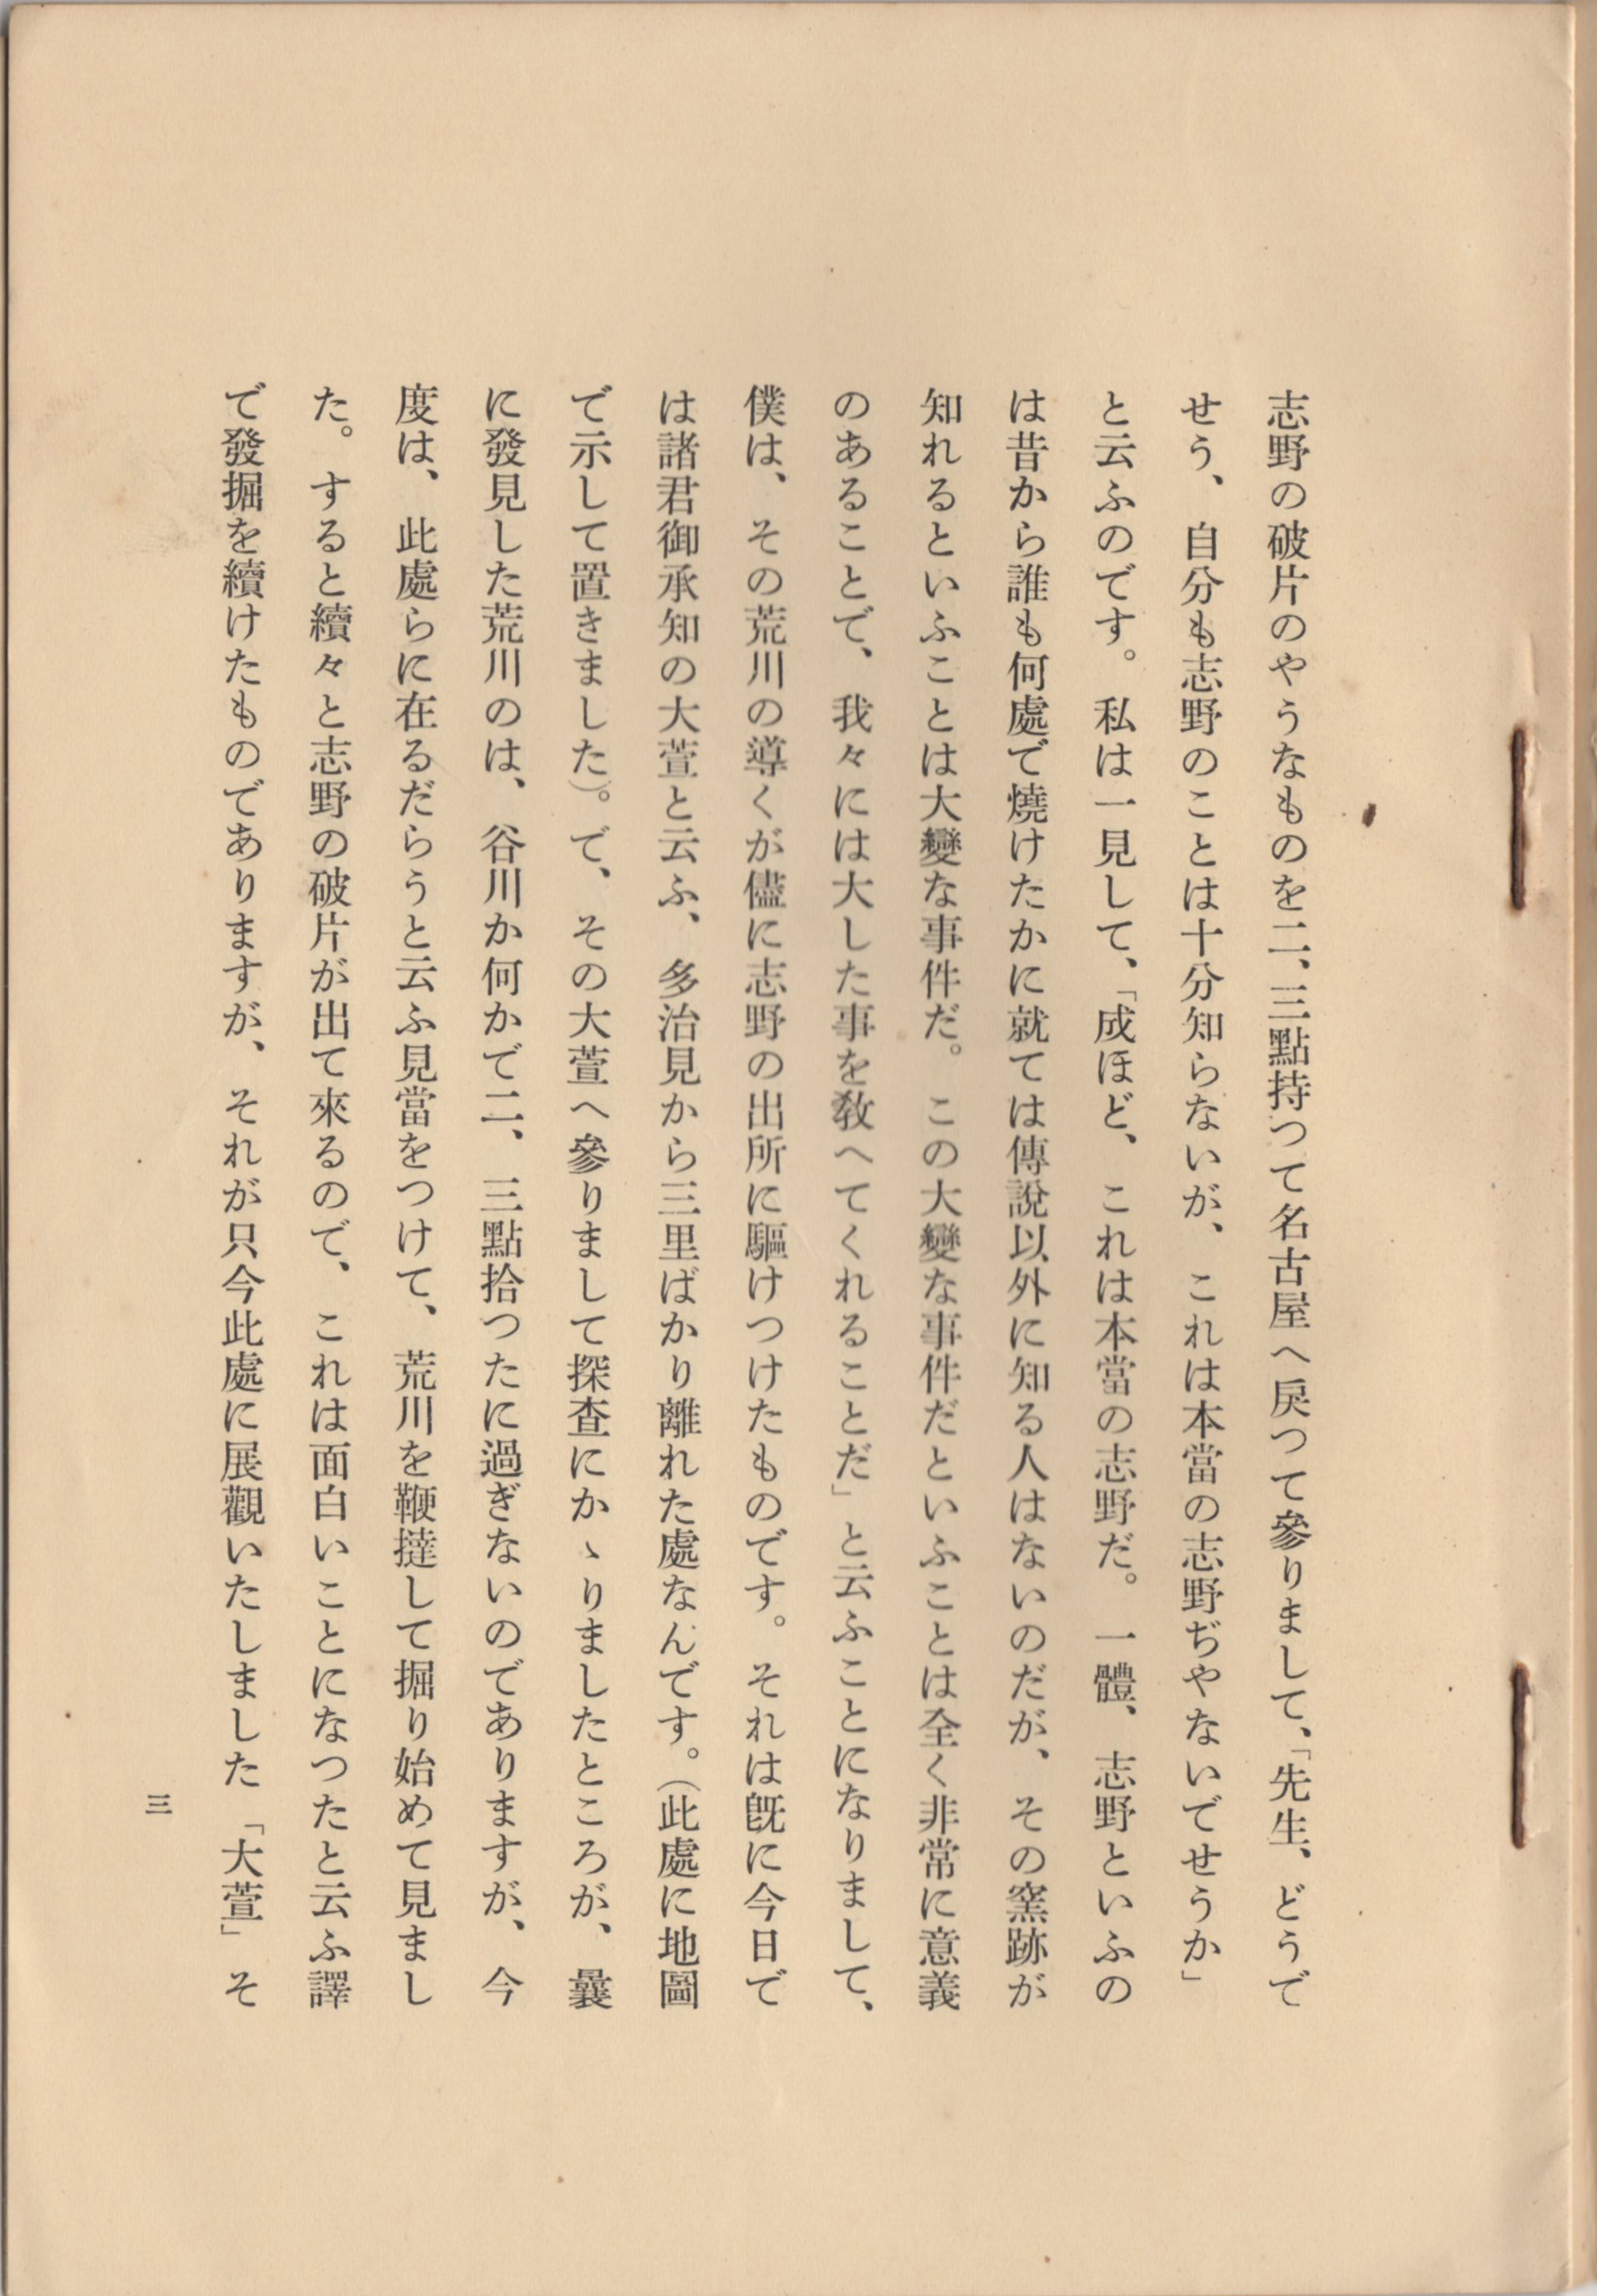 志野の破片のやうなものを二、三點持つて名古屋へ戻つて參りまして、「先生、どうで
せう、自分も志野のことは十分知らないが、これは本當の志野ぢやないでせうか」
と云ふのです。私は一見して、「成ほど、これは本當の志野だ。一體、志野といふの
は昔から誰も何處で燒けたかに就ては傳說以外に知る人はないのだが、その窯跡が
知れるといふことは大變な事件だ。この大變な事件だといふことは全く非常に意義
のあることで、我々には大した事を敎へてくれることだ」と云ふことになりまして、
僕は、その荒川の導くが儘に志野の出所に驅けつけたものです。それは旣に今日で
は諸君御承知の大萱と云ふ、多治見から三里ばかり離れた處なんです。（此處に地圖
で示して置きました）。で、その大萱へ參りまして探査にかゝりましたところが、曩
に發見した荒川のは、谷川か何かで二、三點拾つたに過ぎないのでありますが、今
度は、此處らに在るだらうと云ふ見當をつけて、荒川を鞭撻して掘り始めて見まし
た。すると續々と志野の破片が出て來るので、これは面白いことになつたと云ふ譯
で發掘を續けたものでありますが、それが只今此處に展觀いたしました「大萱」そ
三